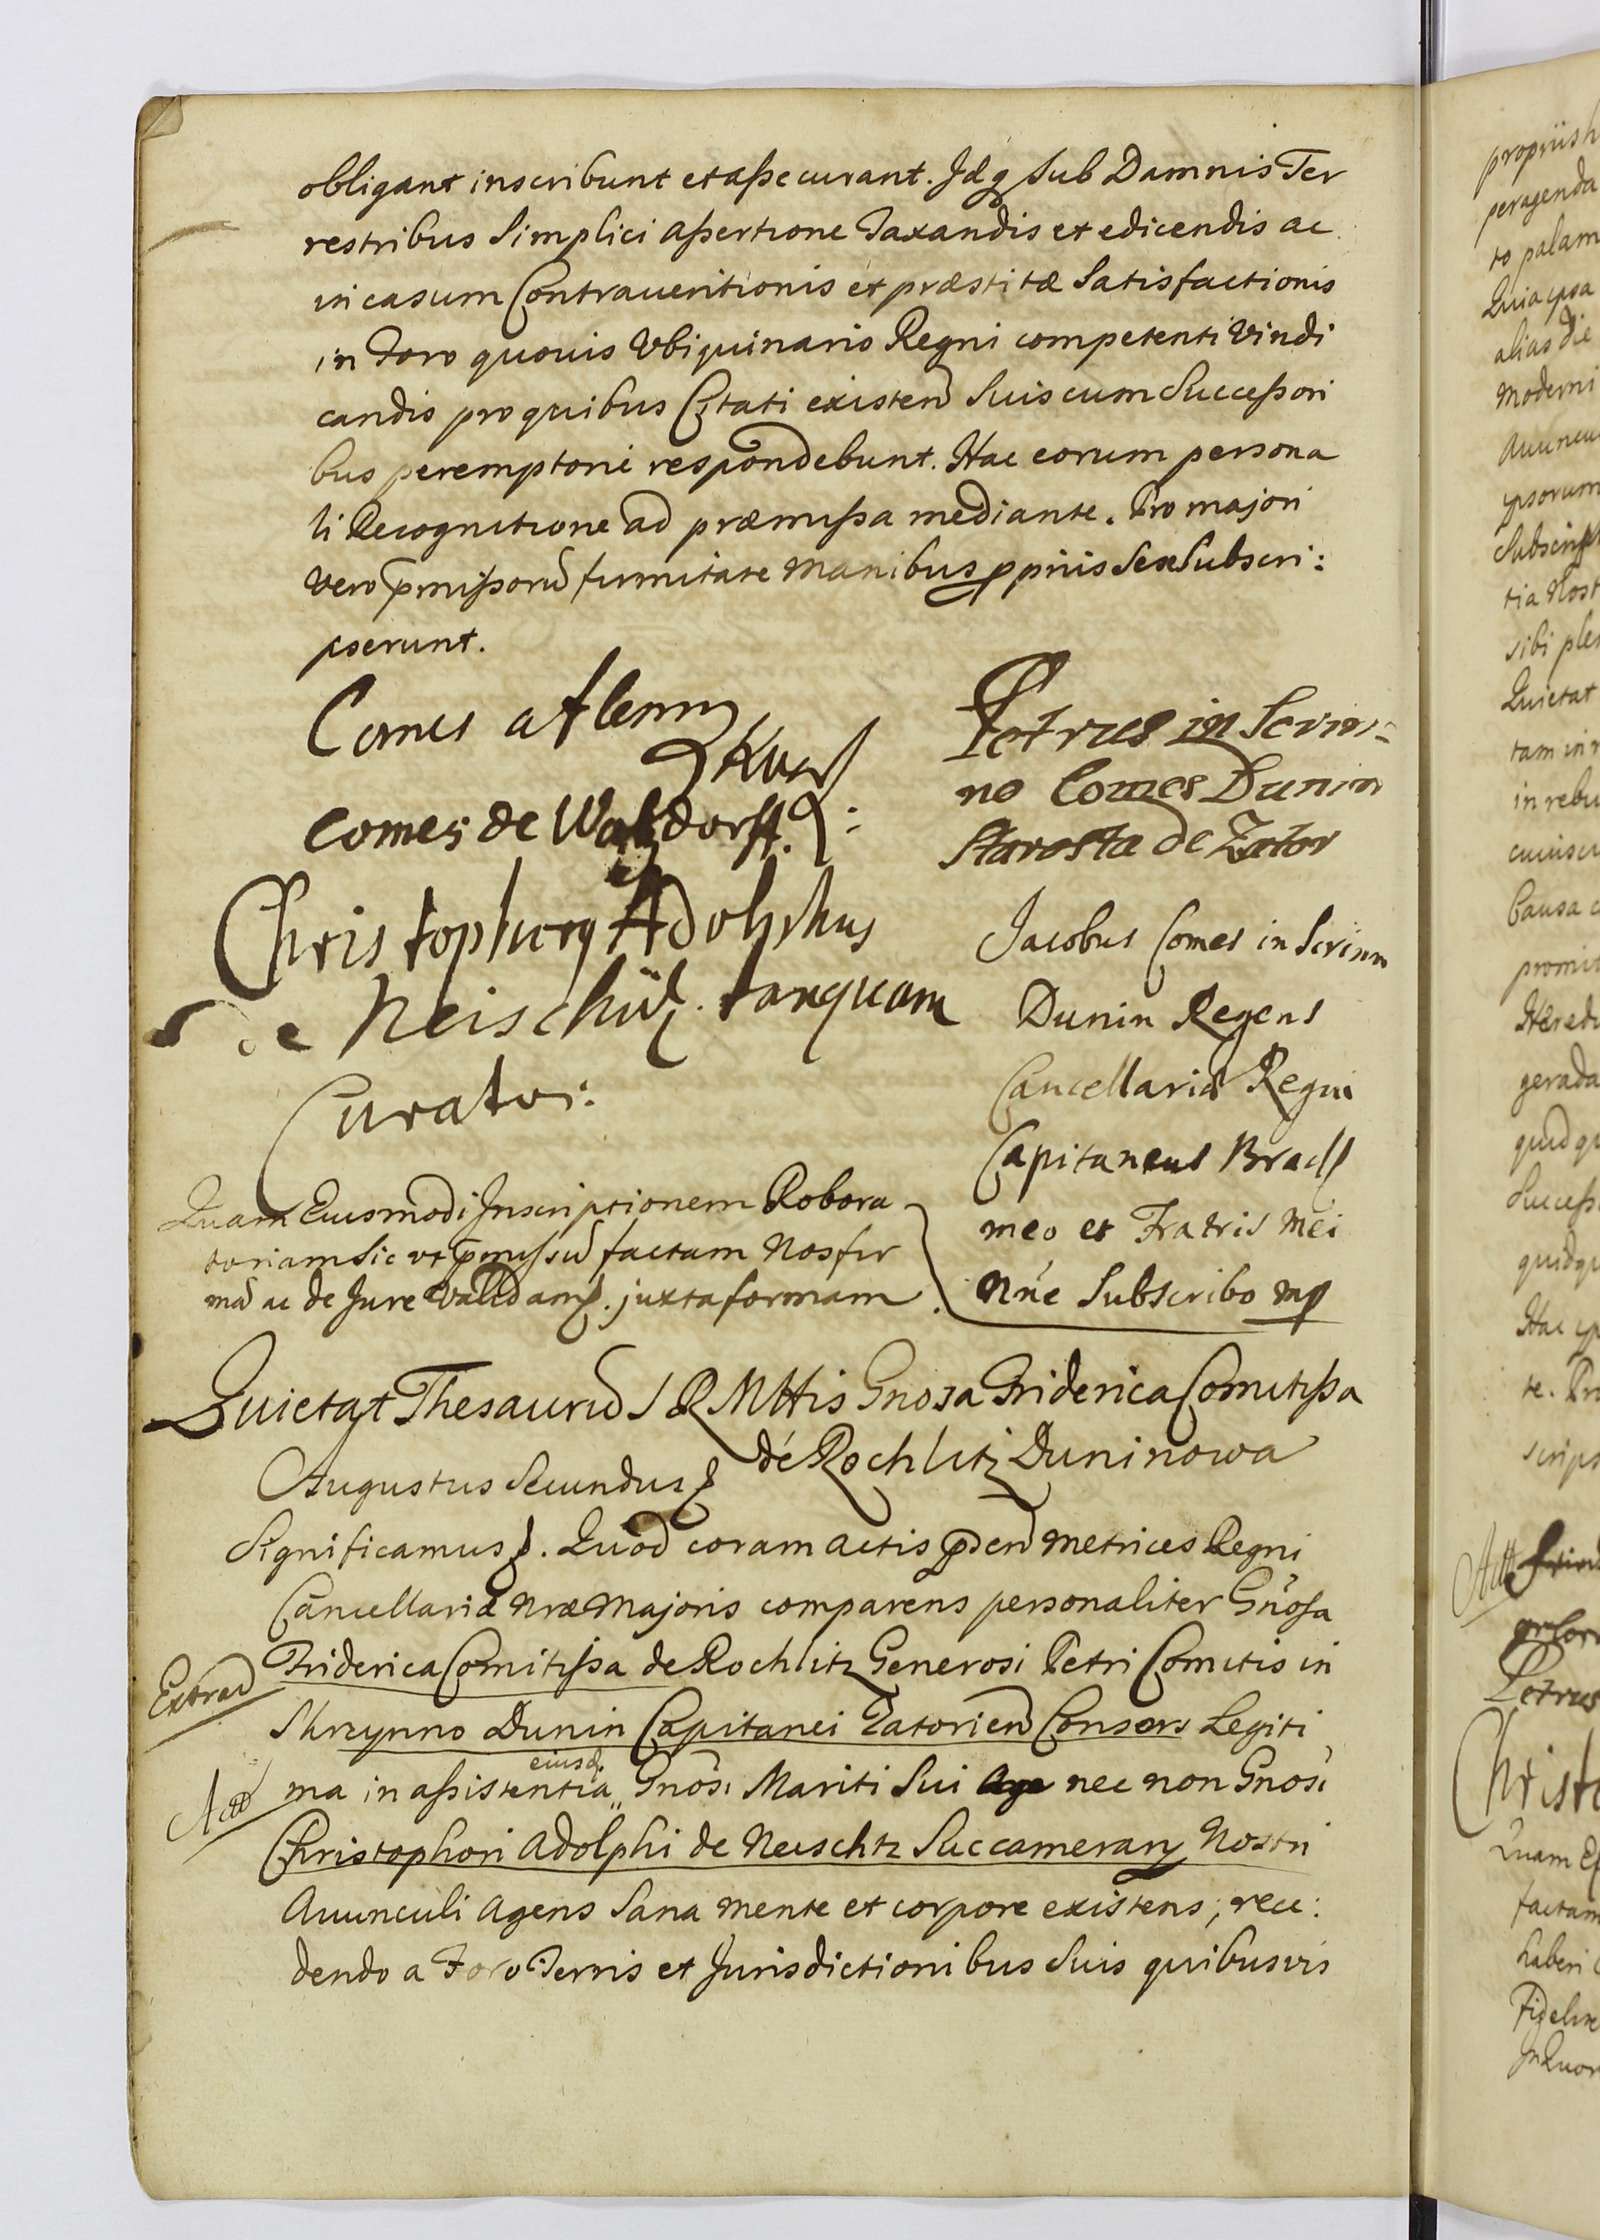 obligant inscribunt et aßecurant. Jdq sub Damnis Ter
restribus Simplici aßertione Taxandis et edicendis ac
in casum Contrauentionis et præstitæ Satisfactionis
in Foro quouis Vbiquinario Regni competenti Vindi
candis pro quibus Citati existen Suis cum Succeßori
bus peremptorie respondebunt. Hac eorum persona
li Recognitione ad præmißa mediante. Pro majori
vero pmißorũ firmitate Manibus ppriis Sese Subscri:
pserunt.
Comes a flemmg
Comes de Waltzdorff.
Christopherg Adolphus
de Neischüz. tanquam
Curator:
Petrus in Scrin:
no Comes Dunin
Starosta de Zator
Jacobus Comes in Scrinno
Dunin Regens
Cancellariæ Regni
Capitaneus Bracl
meo et Fratris Mei
Nñe Subscribo mp
Quam Eiusmodi Inscriptionem Robora
toriam Sic vt pmißũ factam Nos fir
mã ac de Jure Validam. juxta formam
Quietat Thesaurũ S R Mttis Gnosa Friderica Comitißa
dé Rochlitz Duninowa
Augustus Secundus
Significamus. Quod coram actis pden Metrices Regni
Cancellariæ Nræ Majoris comparens personaliter Gnosa
Friderica Comitißa de Rochlitz Generosi Petri Comitis in
Skrzynno Dunin Capitanei Zatorien Consors Legiti
ma in aßistentia eiusd Gnosi Mariti Sui nec non Gnosi
Christophori Adolphi de Neischtz Succamerarij Nostri
Auunculi Agens Sana mente et corpore existens, rece:
dendo a Foro Terris et Jurisdictionibus Suis quibusvis
Extrad
Actt
propriis h
peragenda
to palam
Quia ipsa
alias die
Moderni
Auuncu
ipsorum
Subscrip
tia Nost
sibi ple
Quietat
tam in r
in rebu
cuiuscu
Causa c
promit
Hæred
gerada
quidqu
Succeß
quidqu
Hac ip
te. Pro
scrips
Petrus
Christo
Quam E
factam
haberi
Fidelir
In Quor